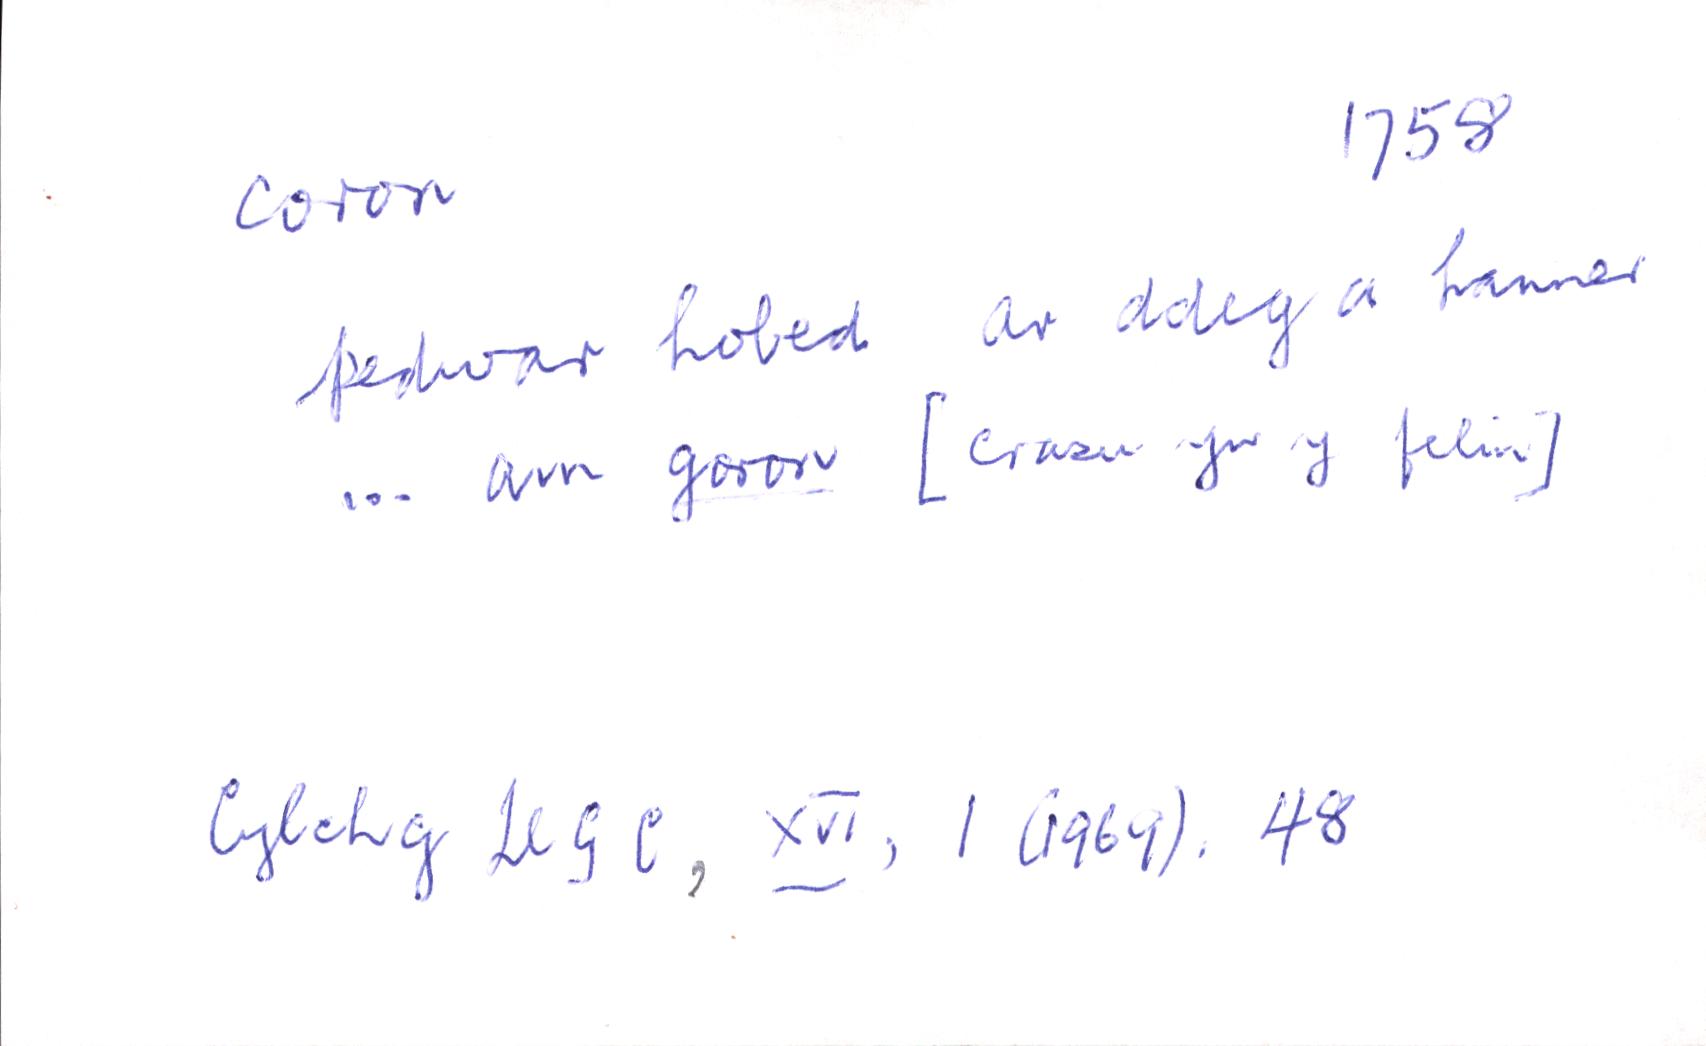 1758
coron
pedwar hobed ar ddeg a hanner
... am goron [crasu yn y felin]
Cylchg LlGC, XVI, 1 (1969). 48